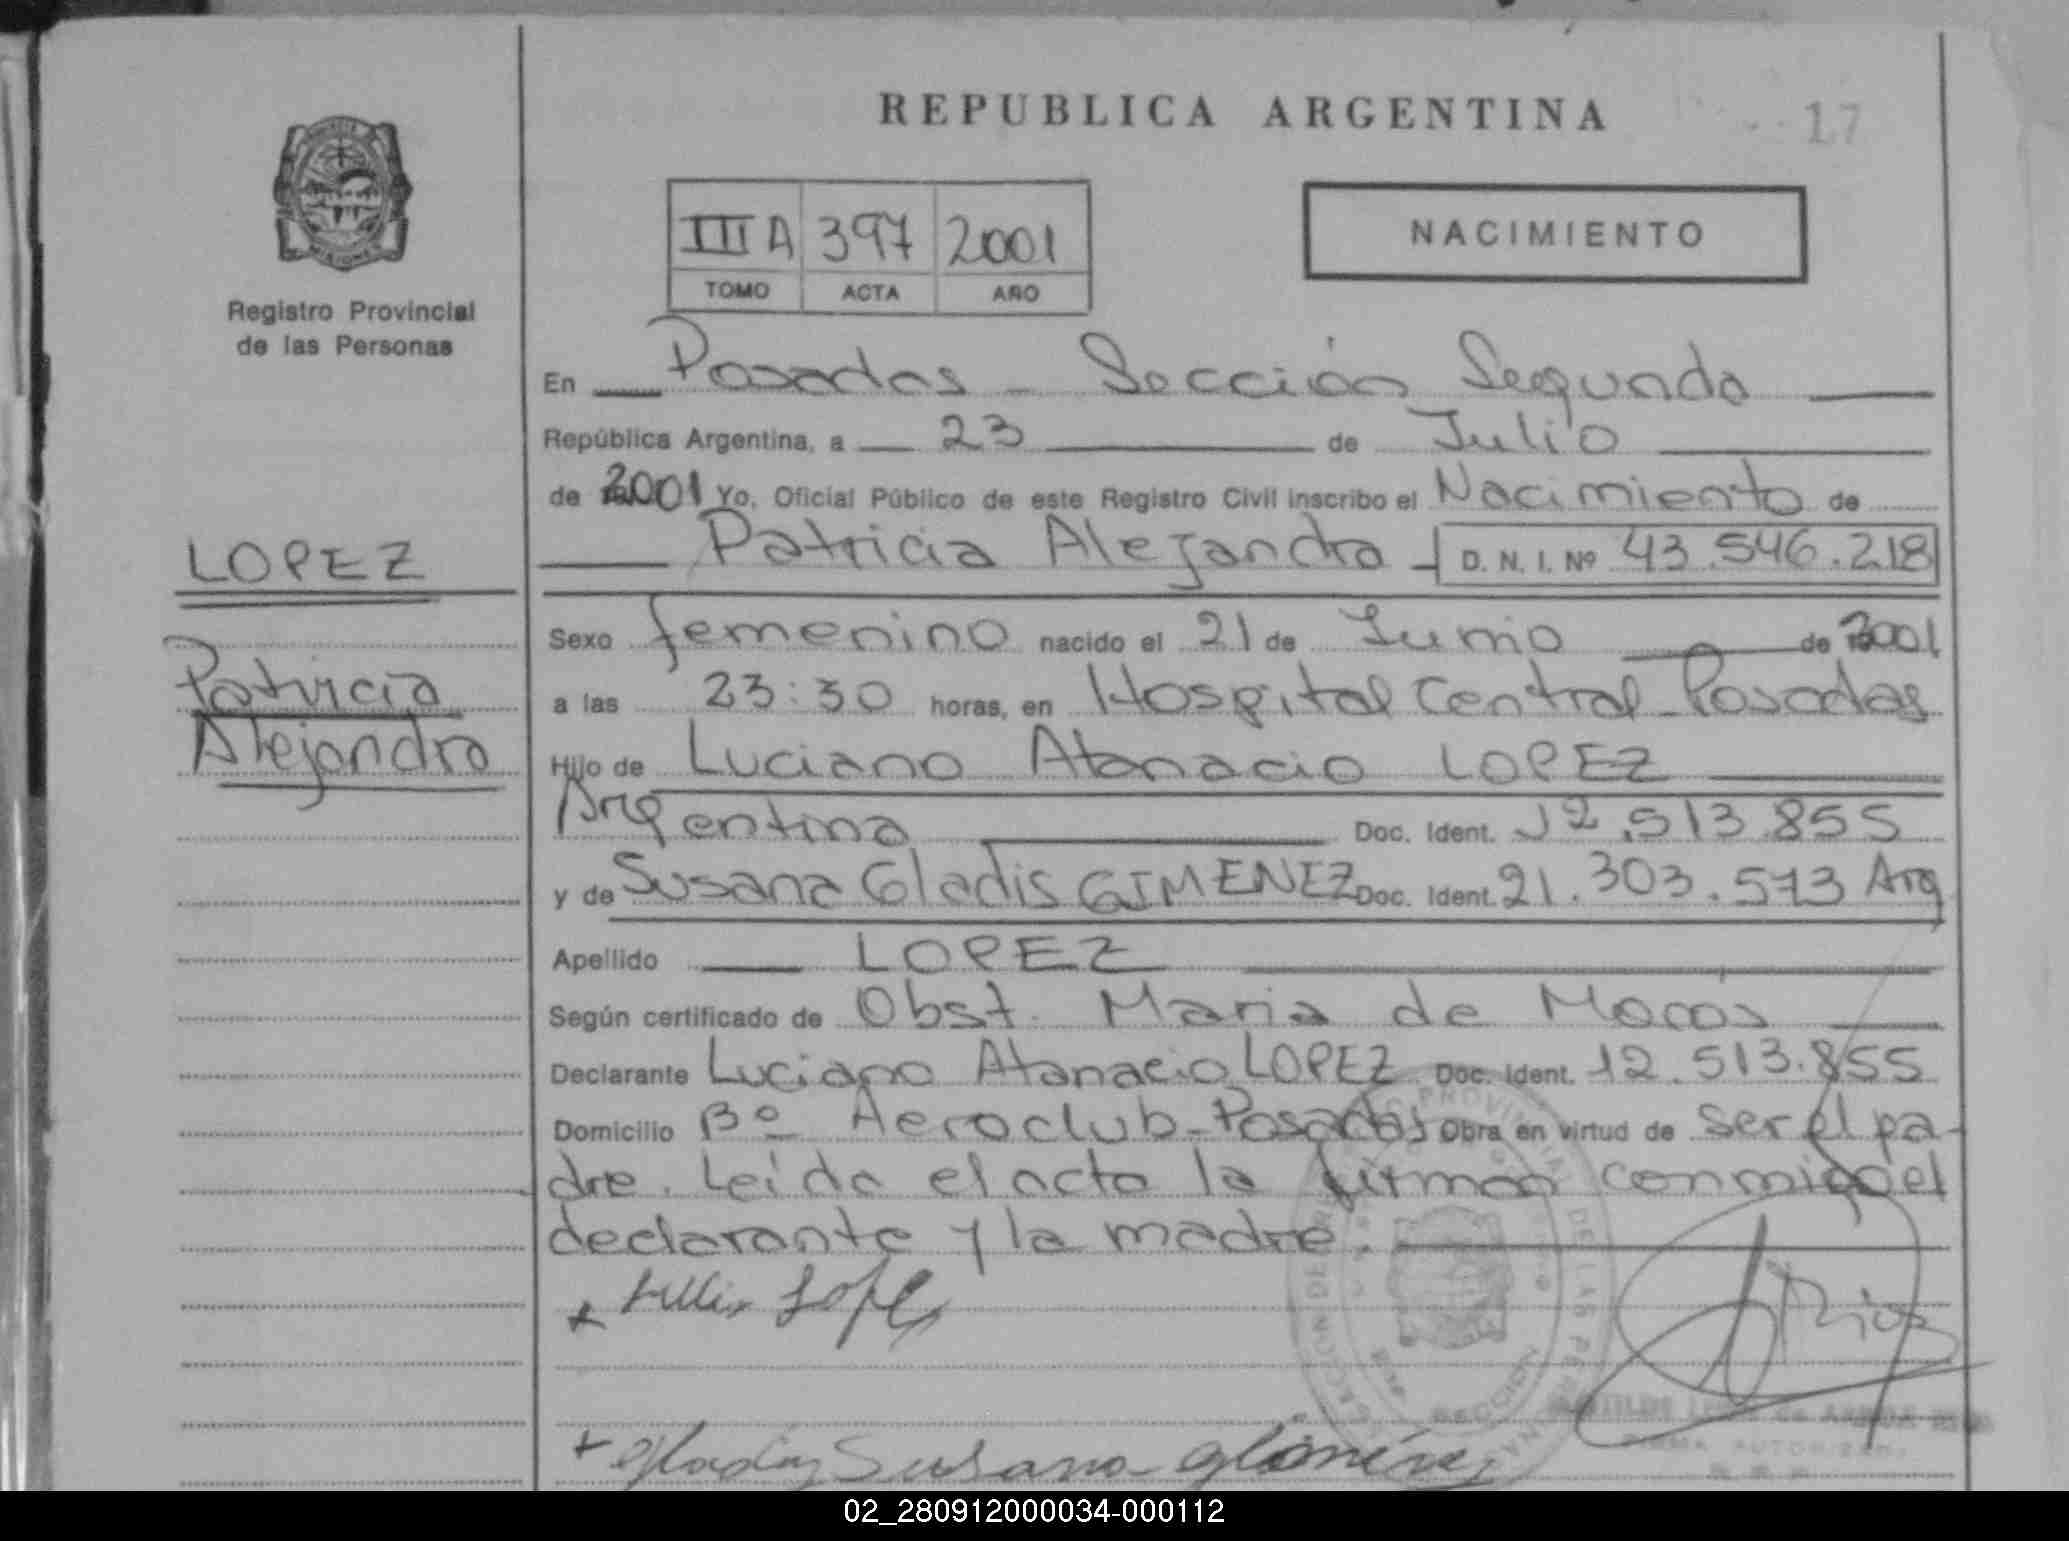 REPUBLICA ARGENTINA
17
NACIMIENTO
III A 397 2001
TOMO ACTA AÑO
Registro Provincial
de las Personas
En Posadas - Sección Segunda
República Argentina, a 23 de Julio
de 2001 Yo, Oficial Público de este Registro Civil inscribo el Nacimiento de
Patricia Alejandra D. N. I. Nº 43.546.218
LOPEZ
Patricia
Alejandra
Sexo femenino nacido el 21 de Junio de 2001
a las 23:30 horas, en Hospital Central - Posadas
Hijo de Luciano Atanacio LOPEZ
Argentina Doc. Ident. 12.513.855
y de Susana Gladis GIMENEZ Doc. Ident. 21.303.573 Arg
Apellido LOPEZ
Según certificado de Obst. Maria de
Declarante Luciano Atanacio LOPEZ Doc. Ident. 12.513.855
Domicilio Bº Aeroclub - Posadas Obra en virtud de ser el pa-
dre. Leída el acta la firman conmigo el
declarante y la madre.
Lopez
Gladis Susana Giménez
Rios
FIRMA AUTORIZADA
02_280912000034-000112